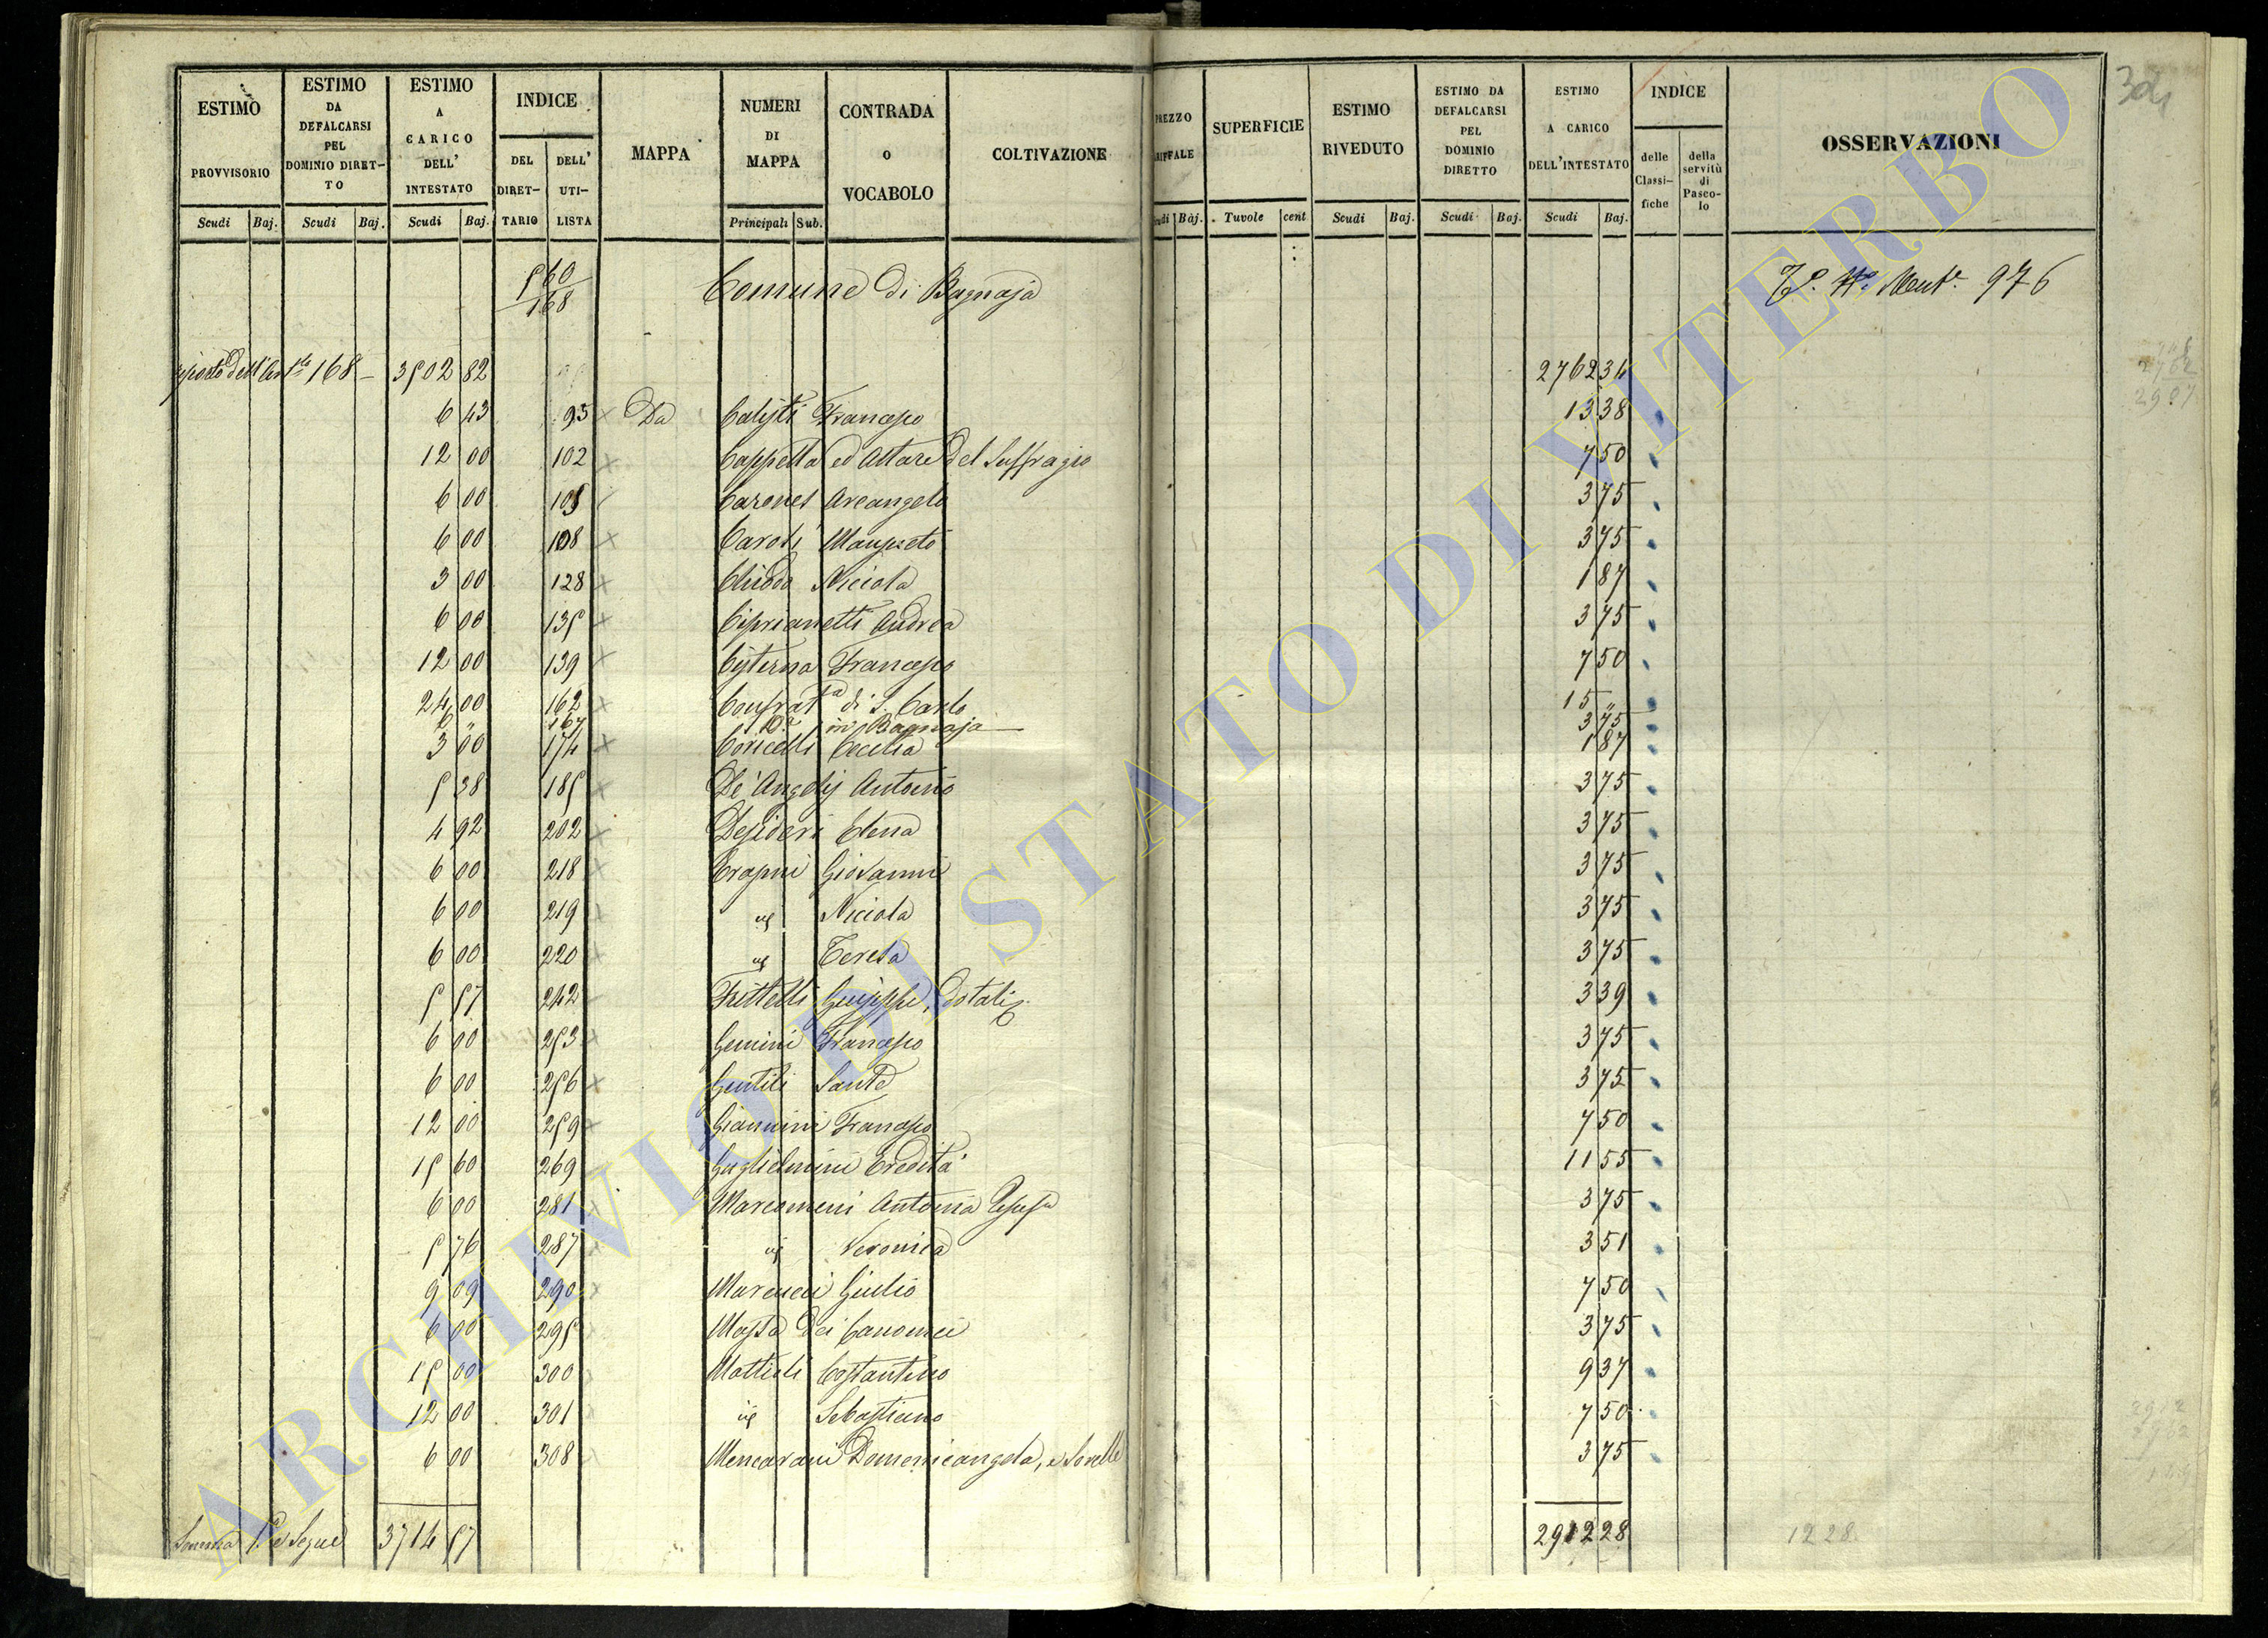 ESTIMO PROVVISORIO | ESTIMO DA DEFALCARSI PEL DOMINIO DIRETTO | ESTIMO A CARICO DELL' INTESTATO | INDICE DEL DIRETTARIO | DELL' UTILISTA | MAPPA | NUMERI DI MAPPA | CONTRADA O VOCABOLO | COLTIVAZIONE | PREZZO | SUPERFICIE | ESTIMO RIVEDUTO | ESTIMO DA DEFALCARSI PEL DOMINIO DIRETTO | ESTIMO A CARICO DELL'INTESTATO | INDICE delle Classifiche | della servitù di Pascolo | OSSERVAZIONI
Scudi Baj. | Scudi Baj. | Scudi Baj. | Principali Sub. | Baj. | Tavole cent | Scudi Baj. | Scudi Baj. | Scudi Baj.
560/168 Comune di Bagnaja 976
168 3502 82 2762 34
6 43 95 Da Calisti Francesco 13 38
12 00 102 Cappella ed Altare del Suffragio 7 50
6 00 105 Arcangelo 3 75
6 00 108 Caroli 3 75
3 00 128 Chiodo Niccola 1 87
6 00 135 Ciprianetti Andrea 3 75
12 00 139 Cisterna Francesco 7 50
24 00 162 Confratta di S. Carlo 15 "
6 " 167 Da in Bagnaja 3 75
3 00 174 Coricelli Cecilia 1 87
5 38 185 De' Angelis Antonio 3 75
4 92 202 Desideri Elena 3 75
6 00 218 Erasmi Giovanni 3 75
6 00 219 Niccola 3 75
6 00 220 Teresa 3 75
5 57 242 Frittelli Giuseppe, Dotali 3 39
6 00 253 Gemini Francesco 3 75
6 00 256 Gentili Sante 3 75
12 00 259 Giannini Francesco 7 50
15 60 269 Guglielmini Eredità 11 55
6 00 281 Marcomeni Antonia 3 75
5 76 287 Veronica 3 51
9 09 290 Marcucci Giulio 7 50
6 00 295 Massa dei Canonici 3 75
15 00 300 Mattioli Costantino 9 37
12 00 301 Sebastiano 7 50
6 00 308 Mencarani Domenicangela, e Sorelle 3 75
Somma e Segue 3714 57 2912 28 1228
ARCHIVIO DI STATO DI VITERBO